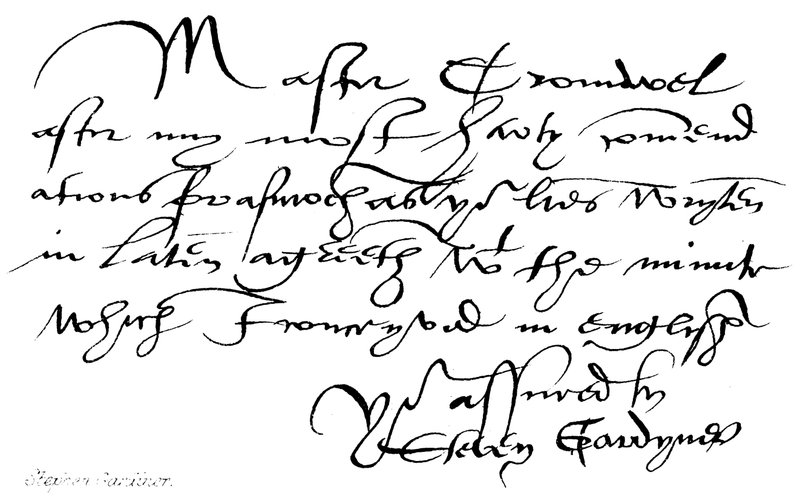 Master Cromwel
after my most harty comend
ations forasmoch as yor lres wryten
in laten agreeth wt the minute
which I conceyved in englishe
Yor assuredly
Steven Gardyner
Stephen Gardiner.